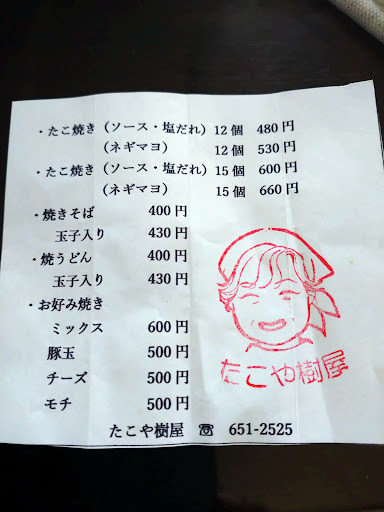 ・たこ焼き（ソース・塩だれ）12個 480円
（ネギマヨ） 12個 530円
・たこ焼き（ソース・塩だれ）15個 600円
（ネギマヨ） 15個 660円
・焼きそば 400円
玉子入り 430円
・焼うどん 400円
玉子入り 430円
・お好み焼き
ミックス 600円
豚玉 500円
チーズ 500円
モチ 500円
たこや樹屋
たこや樹屋 ☎ 651-2525